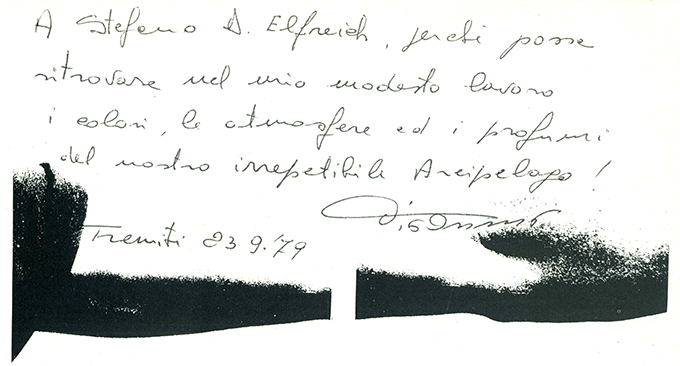 A Stefano D. Elfreich, perché possa
ritrovare nel mio modesto lavoro
i colori, le atmosfere ed i profumi
del nostro irrepetibile Arcipelago!
Tremiti 23.9.'79